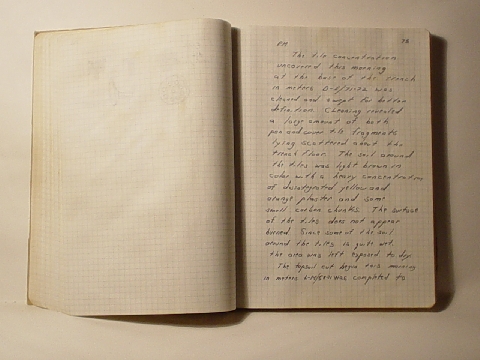 PM 78
The tile concentration
uncovered this morning
at the base of the trench
in meters
cleaned and swept for better
definition. Cleaning revealed
a large amount of both
pan and cover tile fragments
lying scattered about the
trench floor. The soil around
the tiles was light brown in
color with a heavy concentration
of disintegrated yellow and
orange plaster and some
small carbon chunks. The surface
of the tiles does not appear
burned. Since some of the soil
around the tiles is quite wet,
the area was left exposed to dry.
The topsoil cut began this morning
in meters was completed to